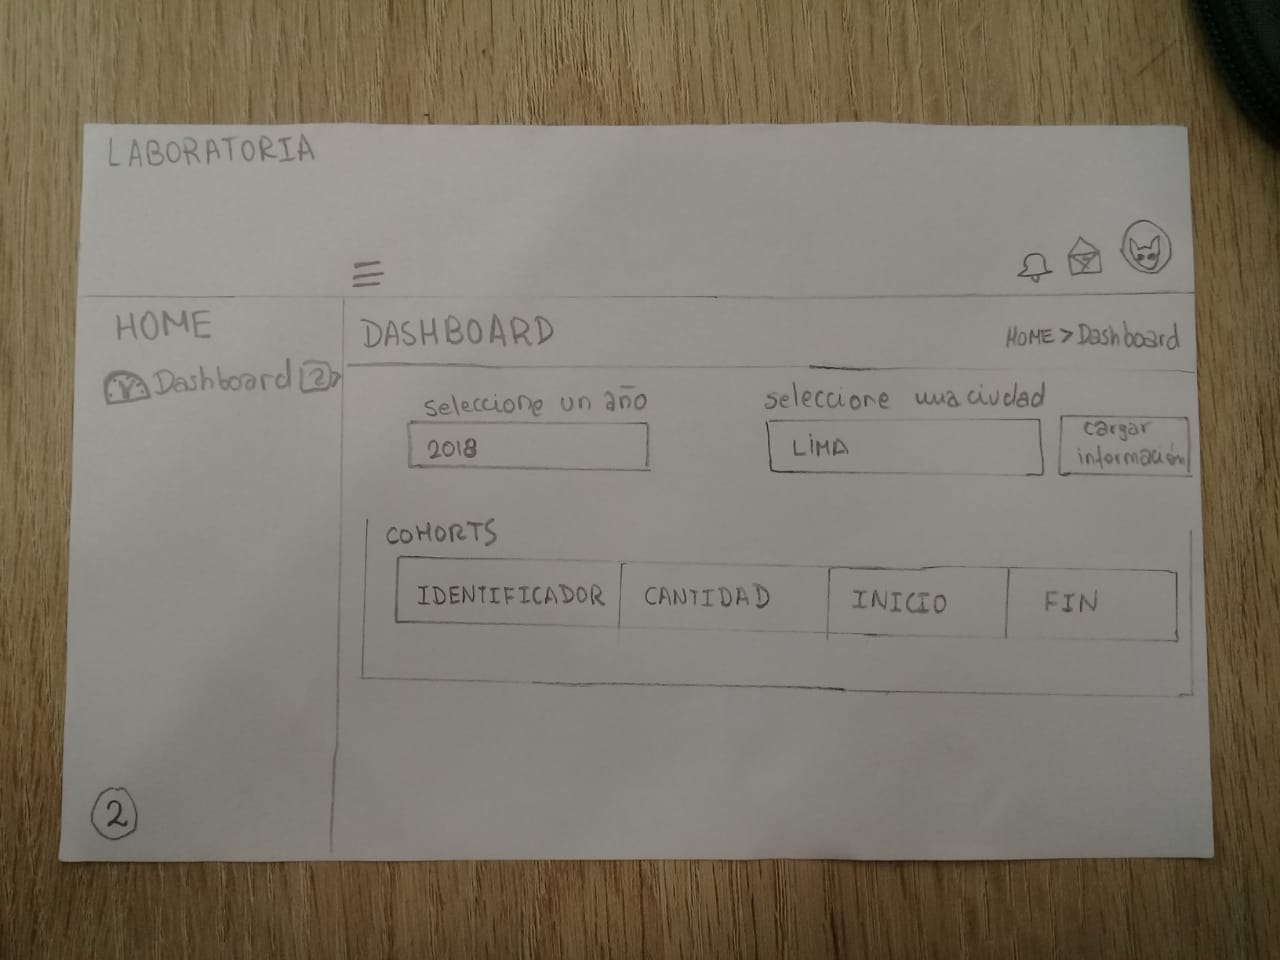 LABORATORIA
HOME
Dashboard 2 >
DASHBOARD
HOME > Dashboard
seleccione un año
2018
seleccione una ciudad
LIMA
cargar
información
COHORTS
IDENTIFICADOR CANTIDAD INICIO FIN
2